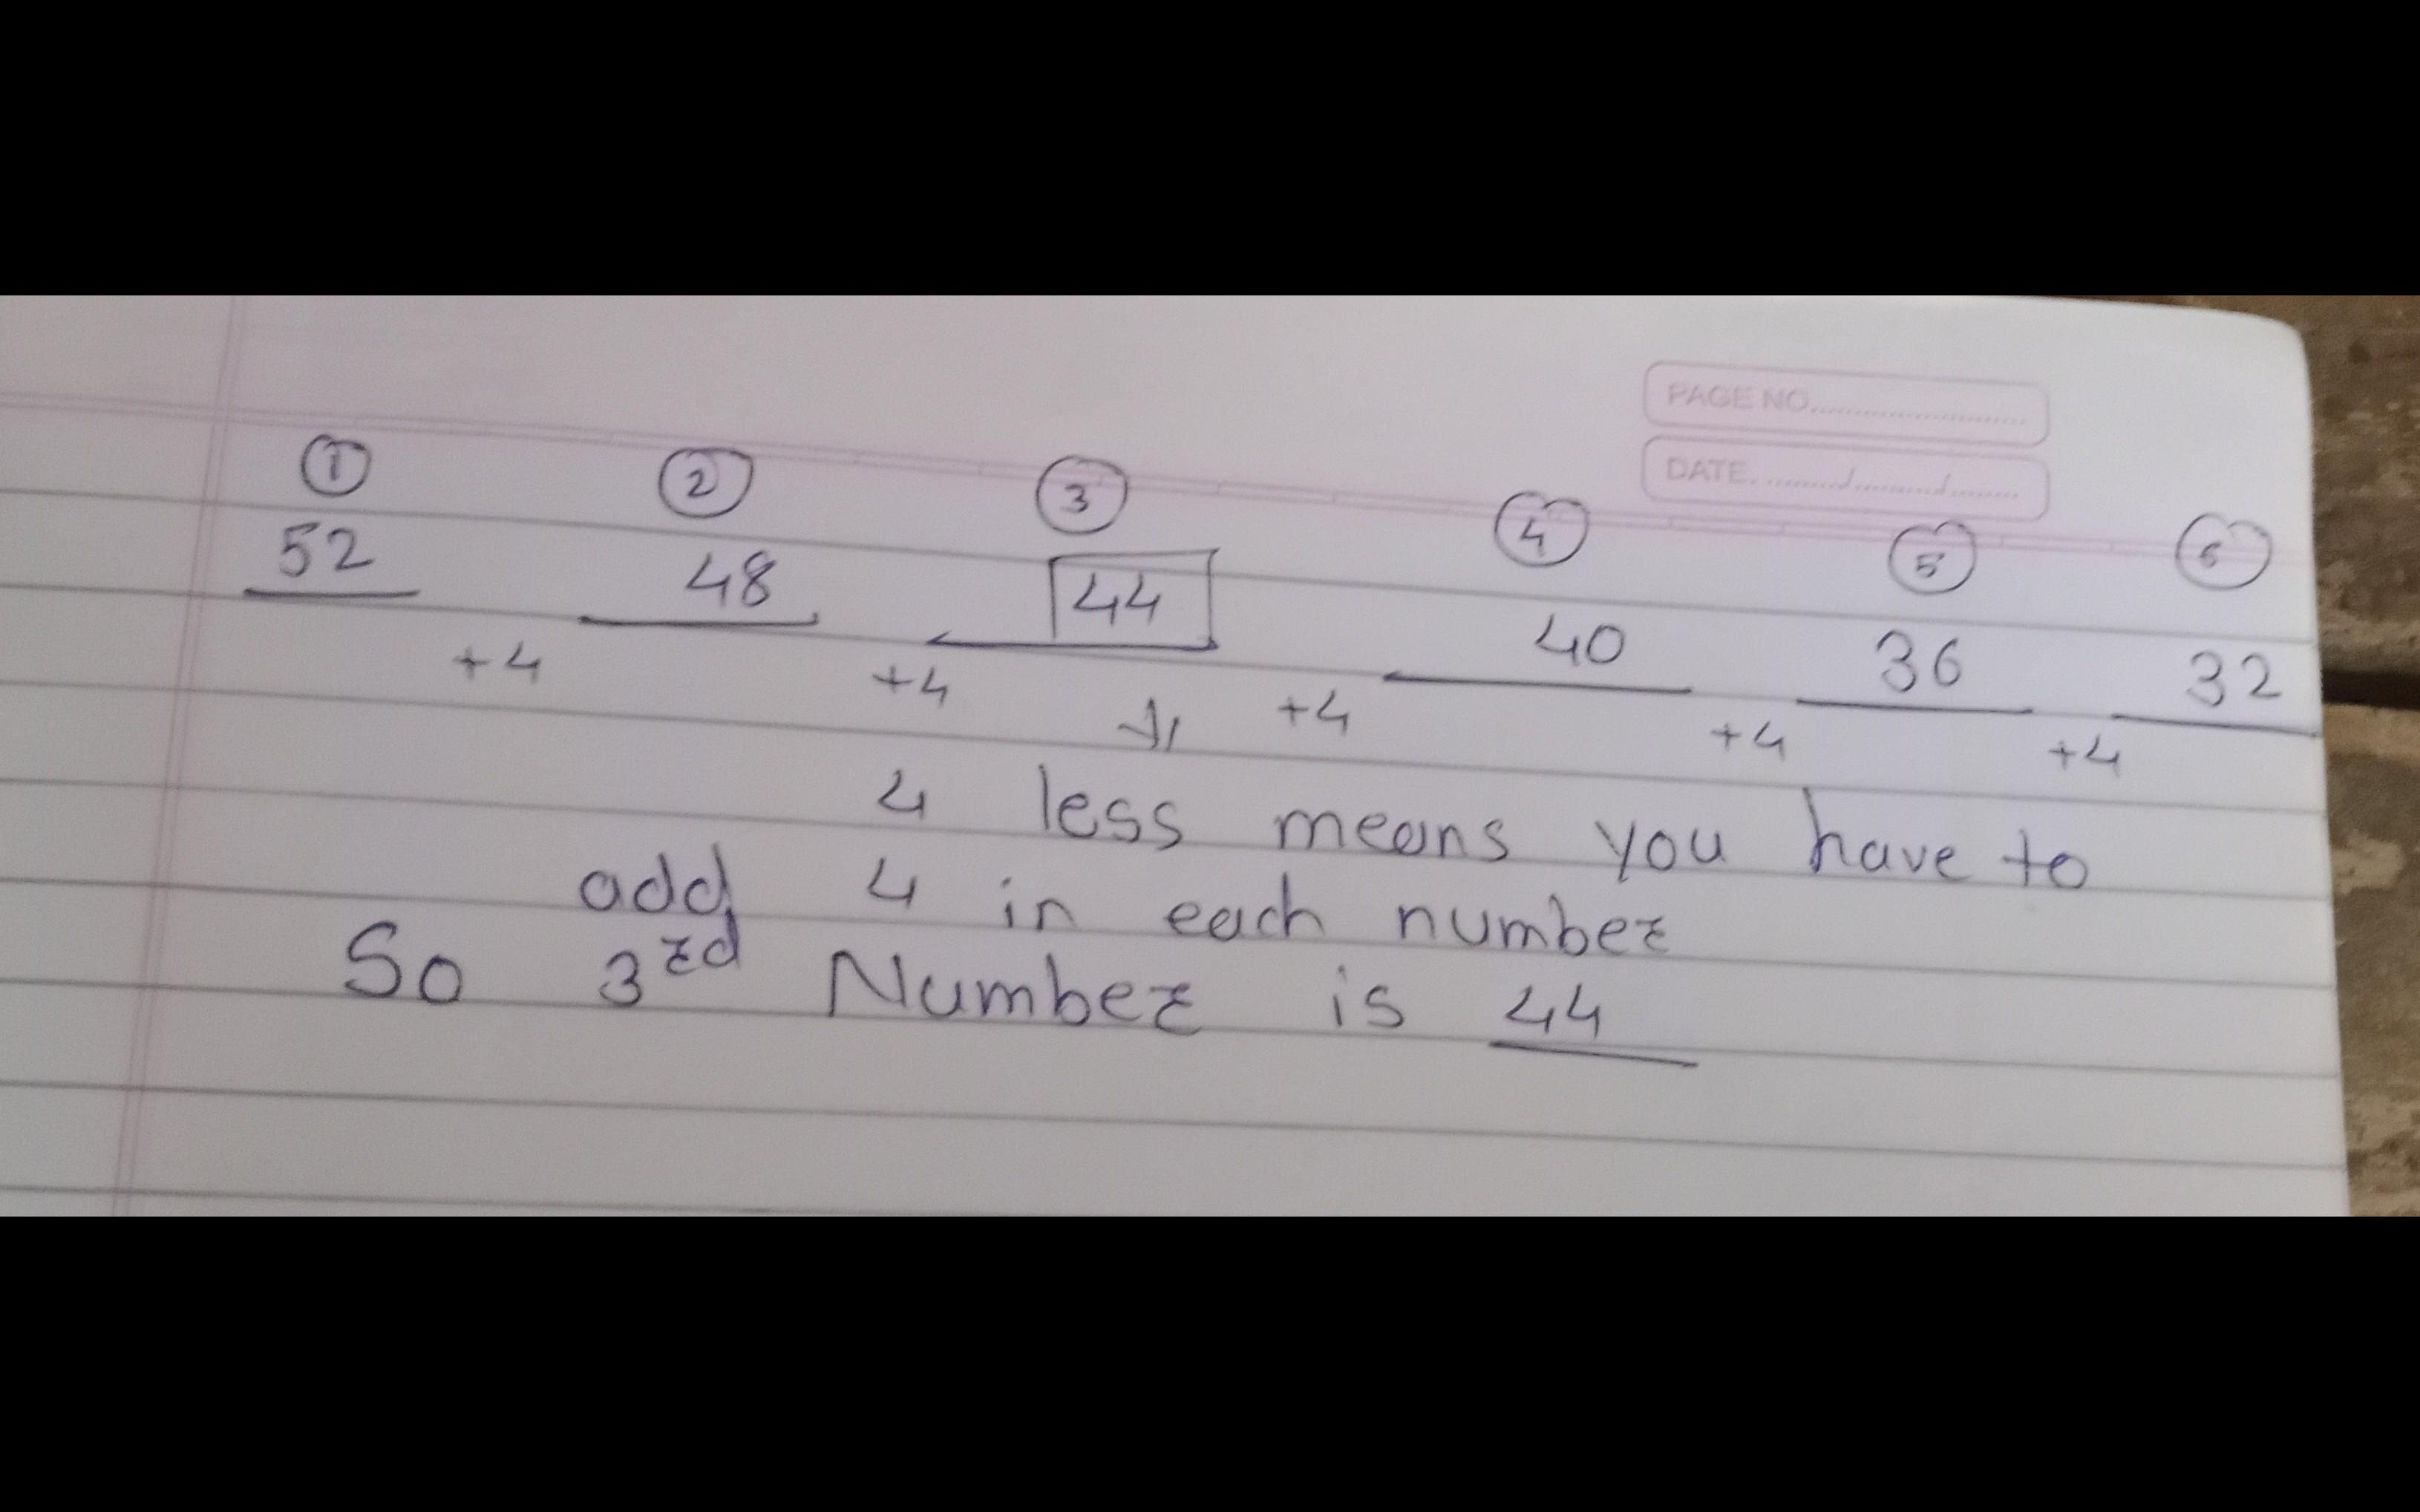 PAGE NO.........................
DATE. ........./........../........
① ② ③ ④ ⑤ ⑥
52 48 44 40 36 32
+4 +4 +4 +4 +4
4 less means you have to
add 4 in each number
So 3rd Number is 44